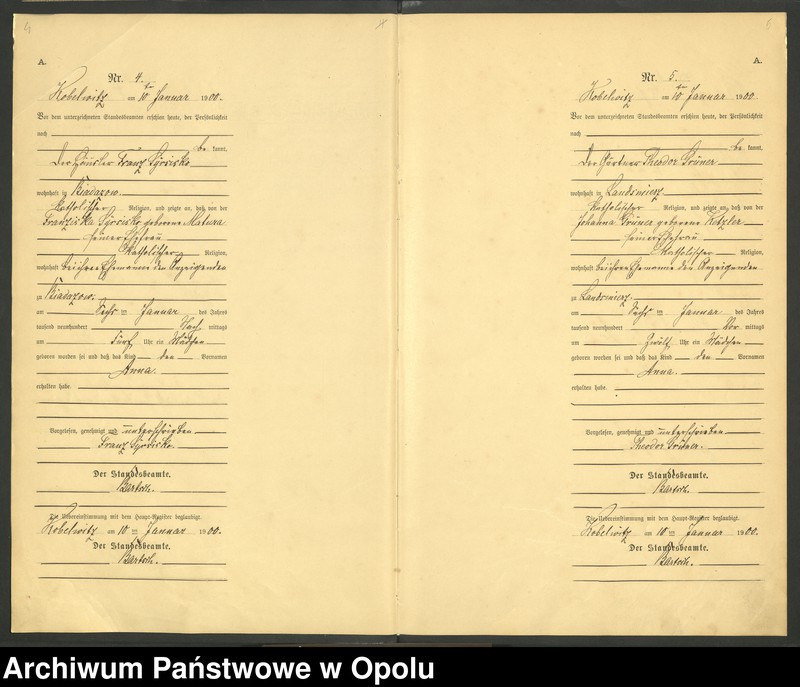 4
A.
Nr. 4.
Kobelwitz am 10ten Januar 1900.
Vor dem unterzeichneten Standesbeamten erschien heute, der Persönlichkeit
nach
be kannt,
Der Häusler Franz
wohnhaft in Biadazow
Katholischer Religion, und zeigte an, daß von der
Franziska geborene Matura
seiner Ehefrau
Katholischer Religion,
wohnhaft bei ihrem Ehemanne den Anzeigenden
zu Biadazow.
am Sechs ten Januar des Jahres
tausend neunhundert Nach mittags
um fünf Uhr ein Mädchen
geboren worden sei und daß das Kind den Vornamen
Anna.
erhalten habe.
Vorgelesen, genehmigt und unterschrieben
Franz
Der Standesbeamte.
Bartsch.
Die Uebereinstimmung mit dem Haupt-Register beglaubigt.
Kobelwitz am 10ten Januar 1900.
Der Standesbeamte.
Bartsch.
5
A.
Nr. 5.
Kobelwitz am 10ten Januar 1900.
Vor dem unterzeichneten Standesbeamten erschien heute, der Persönlichkeit
nach
be kannt,
Der Gärtner Theodor Grüner
wohnhaft in Landsmierz
Katholischer Religion, und zeigte an, daß von der
Johanna Grüner geborene Kotzler
seiner Ehefrau
Katholischer Religion,
wohnhaft bei ihrem Ehemanne den Anzeigenden
zu Landsmierz.
am Sechs ten Januar des Jahres
tausend neunhundert Vor mittags
um Zwölf Uhr ein Mädchen
geboren worden sei und daß das Kind den Vornamen
Anna.
erhalten habe.
Vorgelesen, genehmigt und unterschrieben
Theodor Grüner.
Der Standesbeamte.
Bartsch.
Die Uebereinstimmung mit dem Haupt-Register beglaubigt.
Kobelwitz am 10ten Januar 1900.
Der Standesbeamte.
Bartsch.
Archiwum Państwowe w Opolu